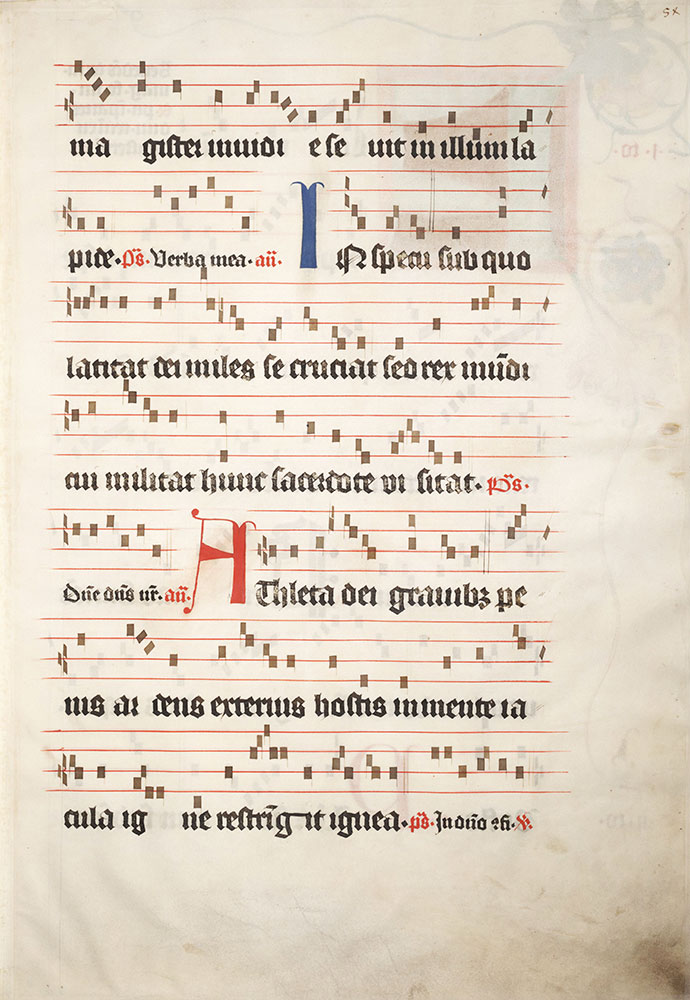 ma gister mundi e se uit in illum la
pide. ps. Verba mea. añ. IN specu sub quo
latitat dei miles se cruciat sed rex mũdi
cui militat hunc sacerdote vi sitat. ps.
Dñe dñs nr̃. añ. AThleta dei grauibꝫ pe
nis ar dens exterius hostis in mente ia
cula ig ne restrĩg it ignea. ps. In dño